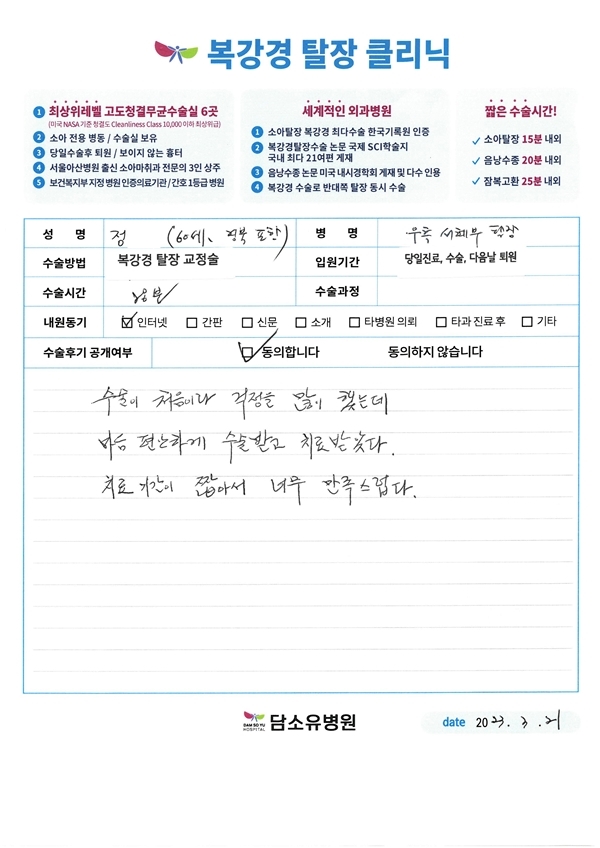 복강경 탈장 클리닉
1 최상위레벨 고도청결무균수술실 6곳
(미국 NASA 기준 청결도 Cleanliness Class 10,000 이하 최상위급)
2 소아 전용 병동 / 수술실 보유
3 당일수술후 퇴원 / 보이지 않는 흉터
4 서울아산병원 출신 소아마취과 전문의 3인 상주
5 보건복지부 지정 병원 인증의료기관 / 간호 1등급 병원
세계적인 외과병원
1 소아탈장 복강경 최다수술 한국기록원 인증
2 복강경탈장수술 논문 국제 SCI학술지
국내 최다 21여편 게재
3 음낭수종 논문 미국 내시경학회 게재 및 다수 인용
4 복강경 수술로 반대쪽 탈장 동시 수술
짧은 수술시간!
소아탈장 15분 내외
음낭수종 20분 내외
잠복고환 25분 내외
성 명 정 (60세, 경북 포항) 병 명 우측 서혜부 탈장
수술방법 복강경 탈장 교정술 입원기간 당일진료, 수술, 다음날 퇴원
수술시간 수술과정
내원동기 인터넷 간판 신문 소개 타병원 의뢰 타과 진료 후 기타
수술후기 공개여부 동의합니다 동의하지 않습니다
수술이 처음이라 걱정을 많이 했는데
마음 편안하게 수술받고 치료받았다.
치료기간이 짧아서 너무 만족스럽다.
DAM SO YU
HOSPITAL
담소유병원
date 2023. 3. 21